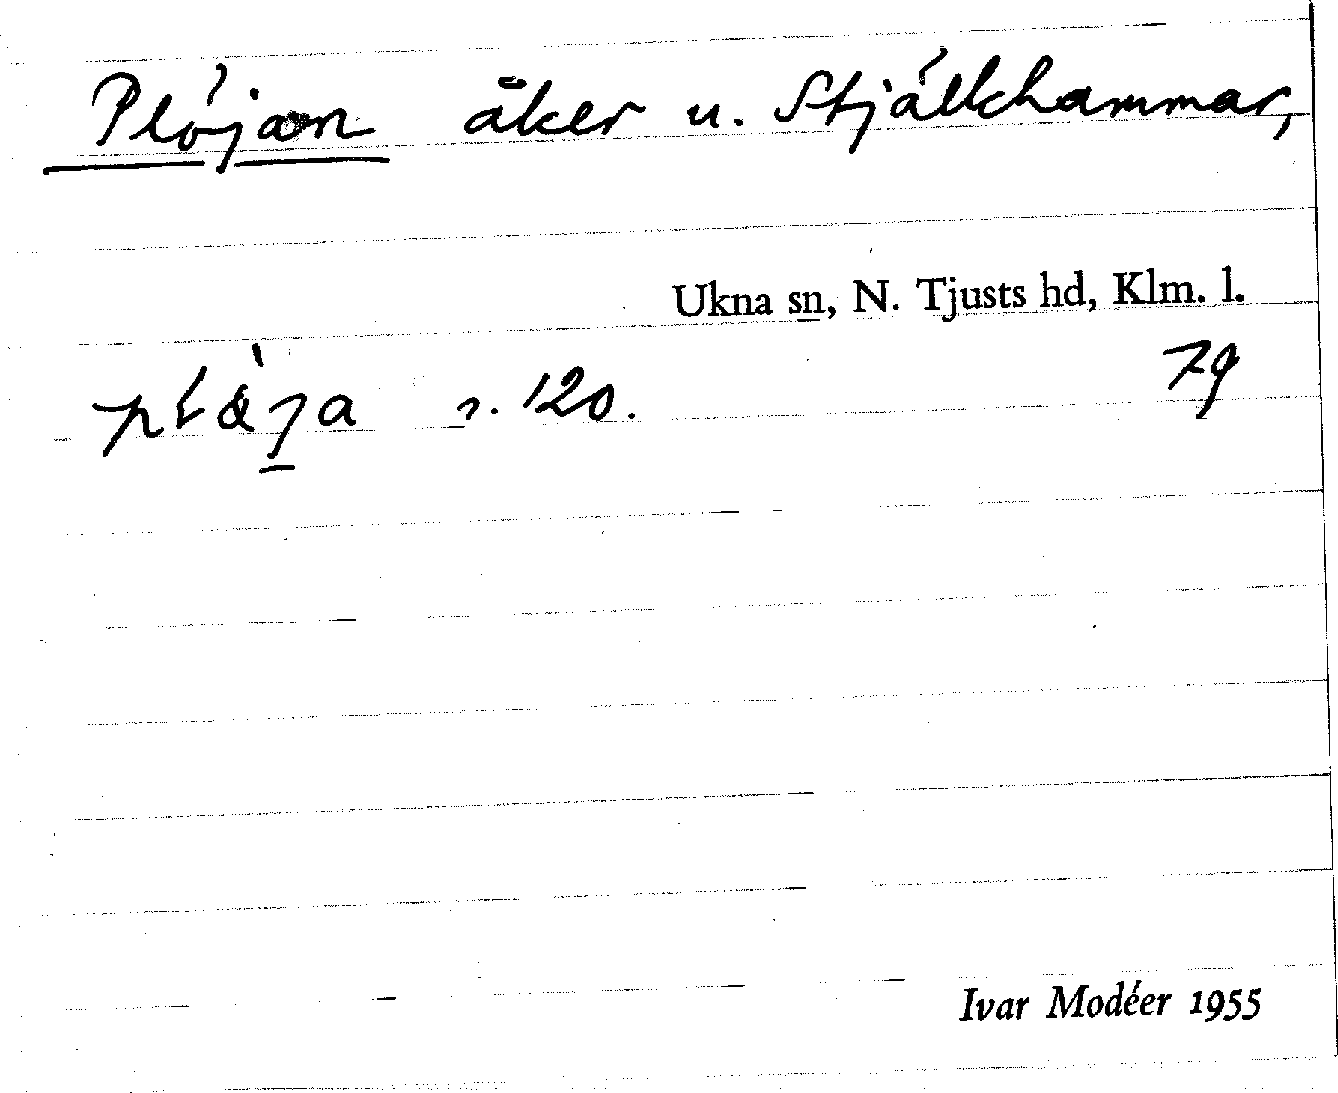 Plöjan åker u. Stjälkhammar,
Ukna sn, N. Tjusts hd, Klm. l.
s. 120. 79
Ivar Modéer 1955